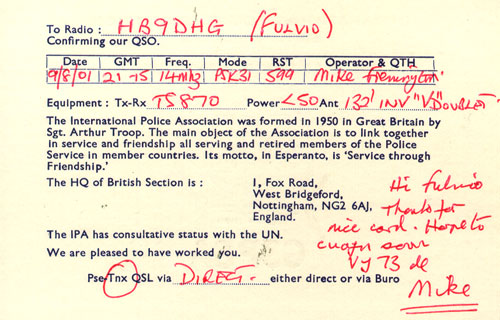 To Radio : HB9DHG (FULVIO)
Confirming our QSO.
Date GMT Freq. Mode RST Operator & QTH
9/8/01 21-15 14Mhz PSK31 599 Mike
Equipment : Tx-Rx TS870 Power <50 Ant 132' INV "V" DOUBLET
The International Police Association was formed in 1950 in Great Britain by
Sgt. Arthur Troop. The main object of the Association is to link together
in service and friendship all serving and retired members of the Police
Service in member countries. Its motto, in Esperanto, is ‘Service through
Friendship.’
The HQ of British Section is : 1, Fox Road,
West Bridgeford,
Nottingham, NG2 6AJ,
England.
The IPA has consultative status with the UN.
We are pleased to have worked you.
Pse-Tnx QSL via DIRECT- either direct or via Buro
Hi Fulvio
Thanks for
nice card. Hope to
cuagn soon
Vy 73 de
Mike